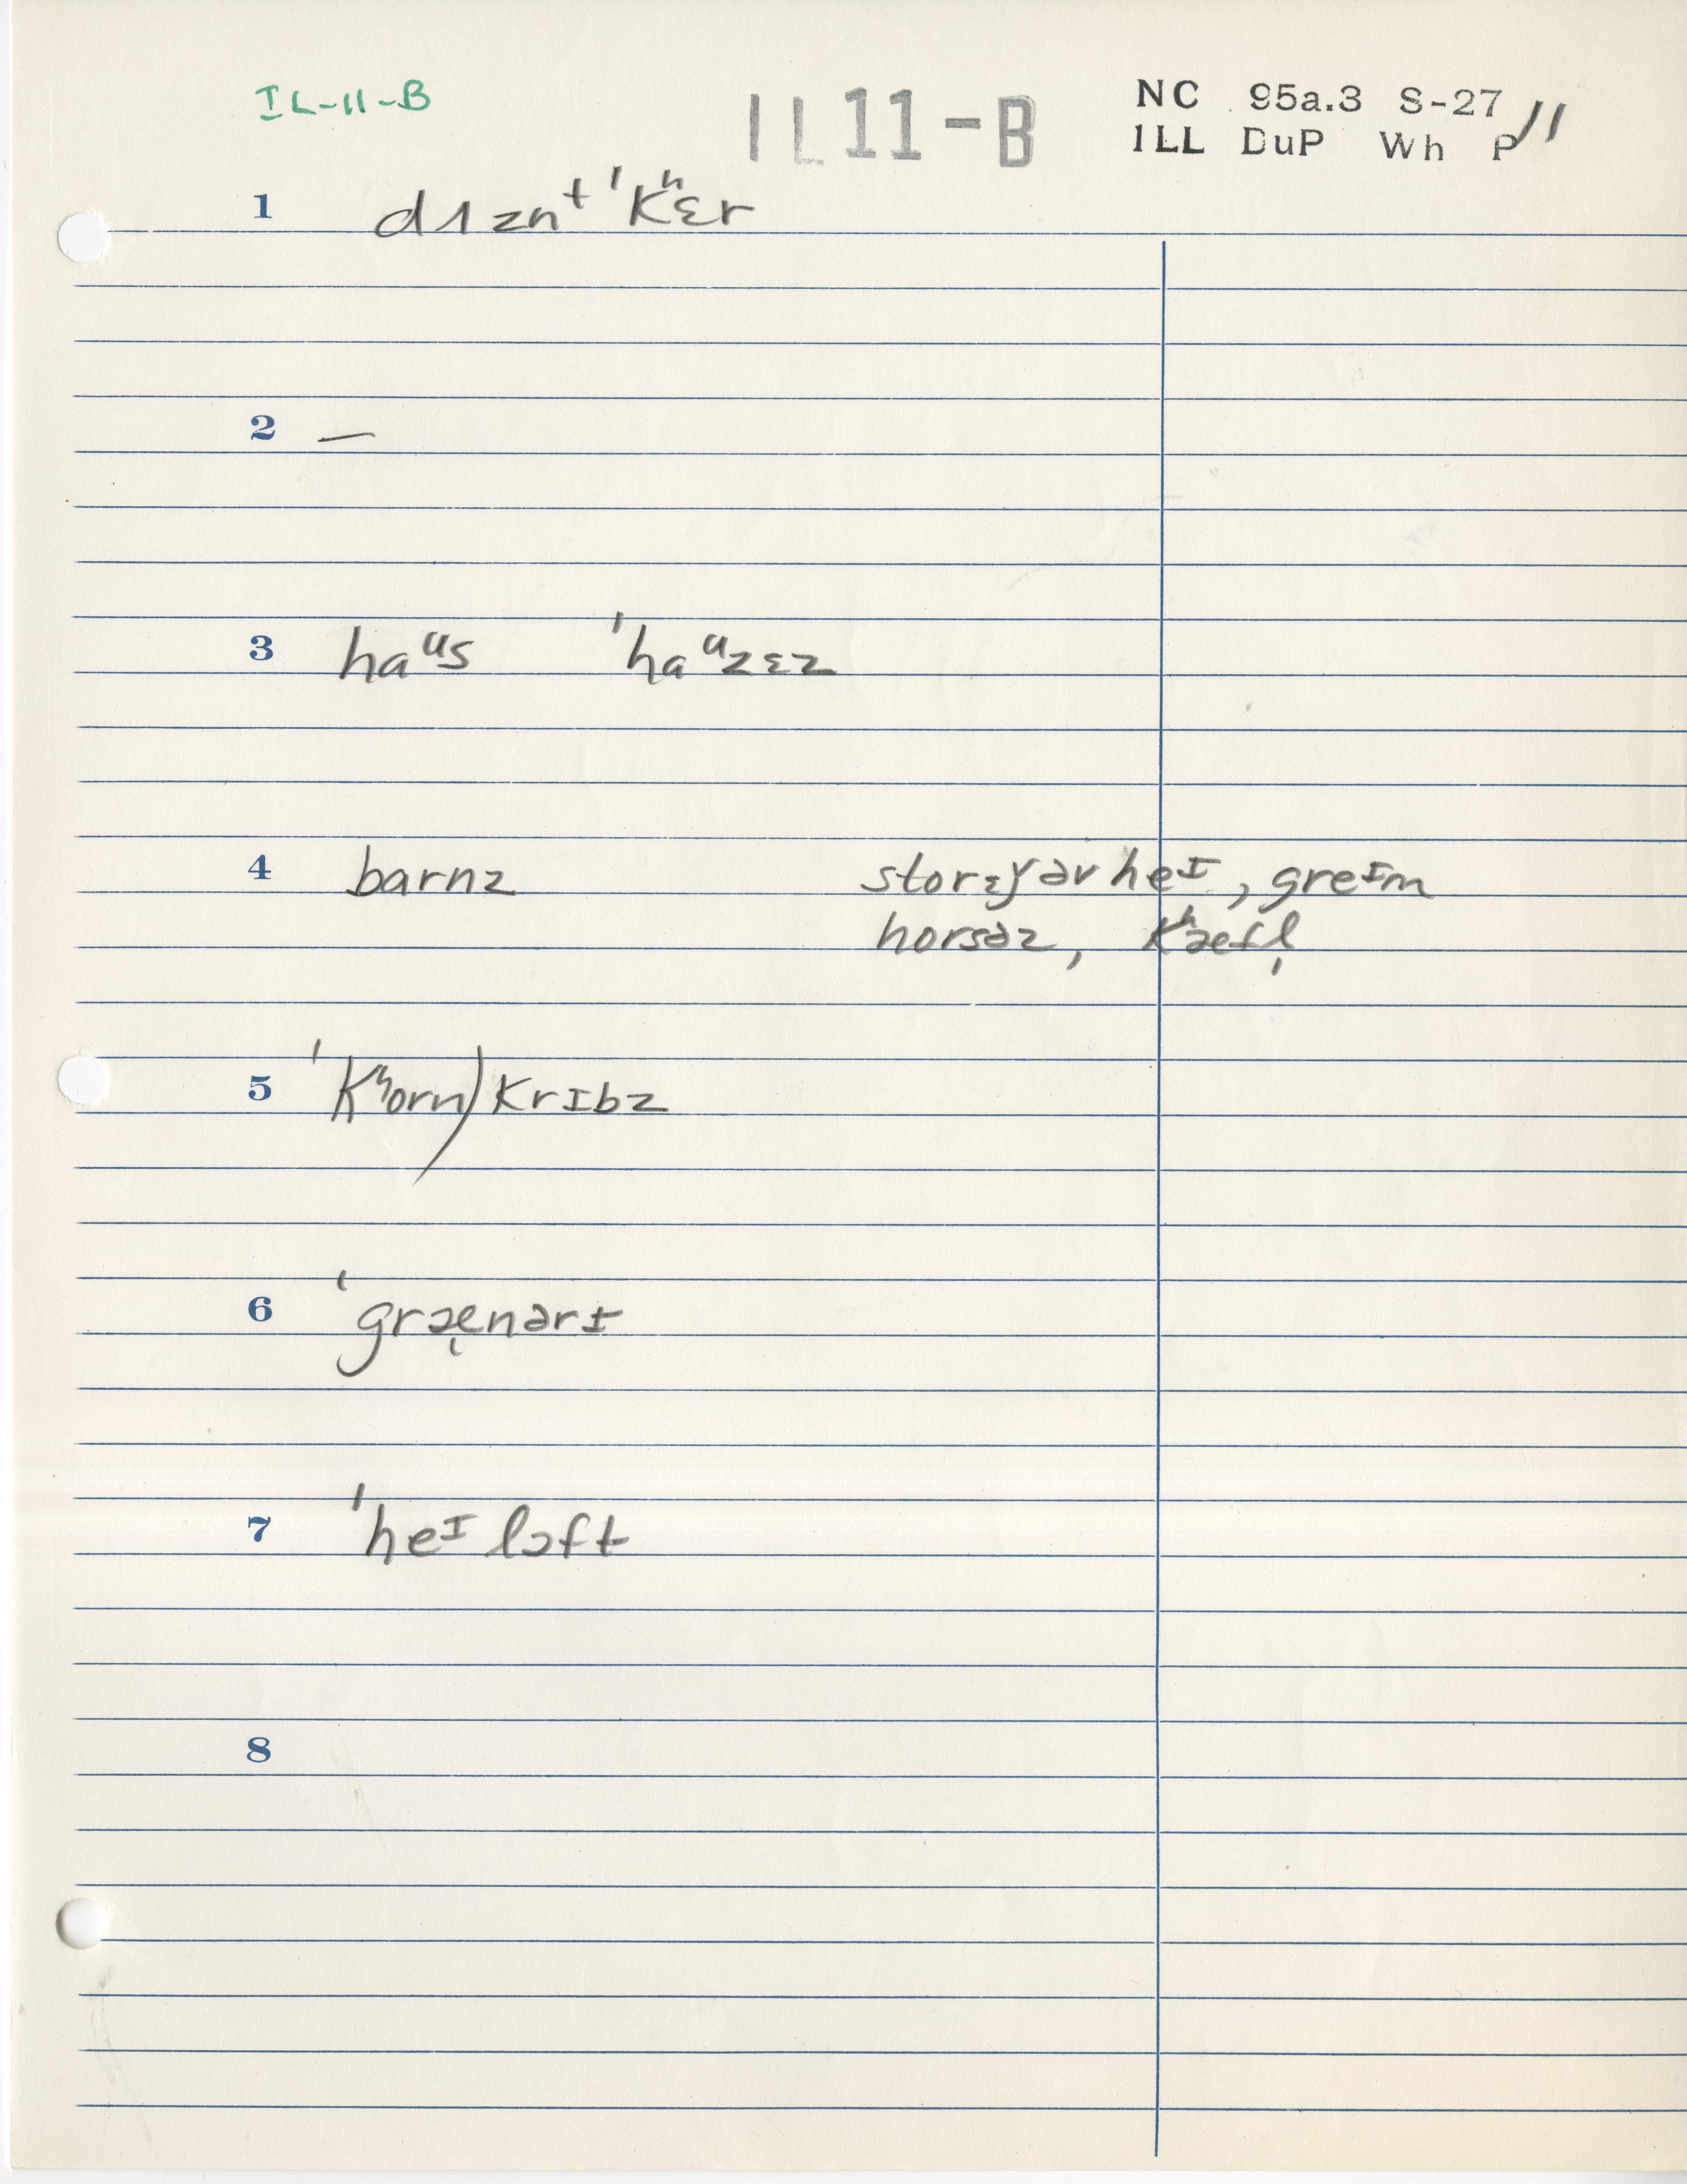 IL-11-B
IL11-B
NC 95a.3 S-27
ILL DuP Wh P 11
1 dɅznᵗ ˈkʰɛr
2 —
3 haᵘs ˈhaᵘzɛz
4 barnz storɛɣəv heᴵ, greᴵm
horsəz, kʰæfl̩
5 ˈkʰorn)krɪbz
6 ˈgræ̩nərɪ
7 ˈheᴵ lɔft
8